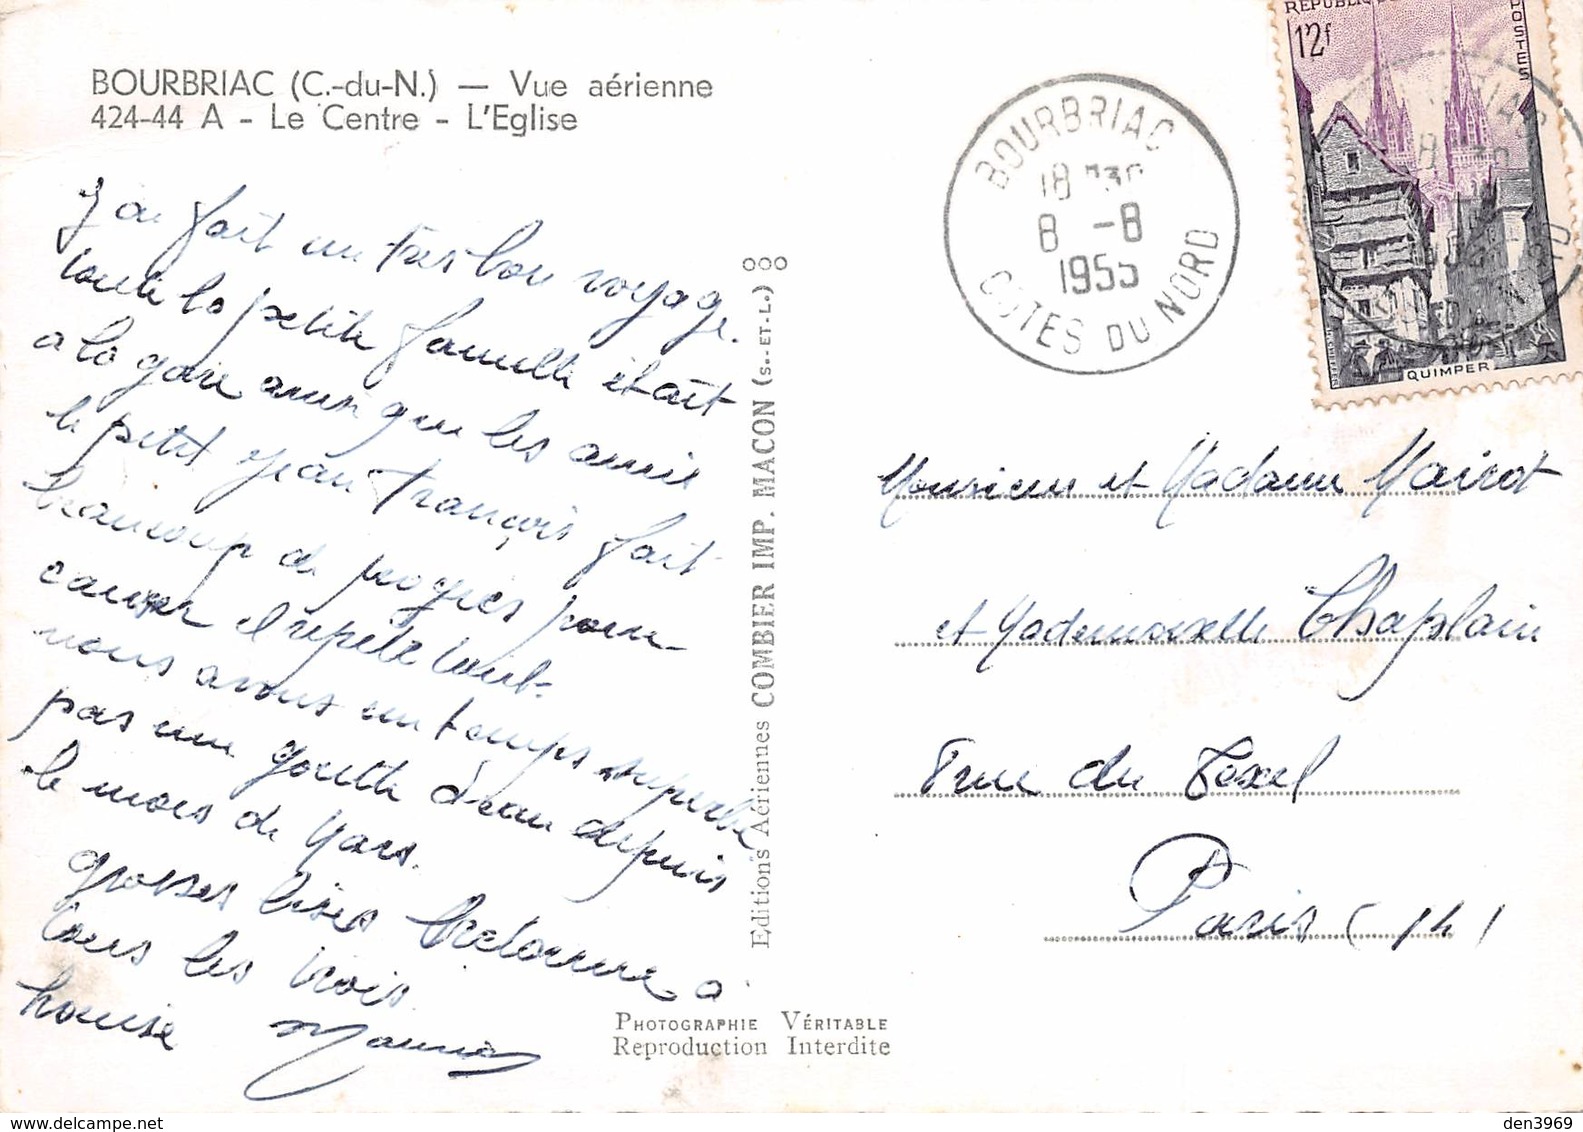 BOURBRIAC (C.-du-N.) — Vue aérienne
424-44 A - Le Centre - L'Eglise
J'ai fait un très bon voyage.
toute la petite famille était
a la gare ainsi que les amis
le petit jean françois fait
beaucoup de progrès pour
causer il repète tout.
nous avons un temps superbe
pas une goutte d'eau depuis
le mois de Mars.
grosses bises bretonne a
tous les trois.
Louise
Editions Aériennes COMBIER IMP. MACON (S.-ET-L.)
PHOTOGRAPHIE VÉRITABLE
Reproduction Interdite
BOURBRIAC
18 H30
8 -8
1955
COTES DU NORD
12f
POSTES
QUIMPER
Monsieur et Madame Mairot
et Mademoiselle Chaplain
rue du Texel
Paris (14)
den3969